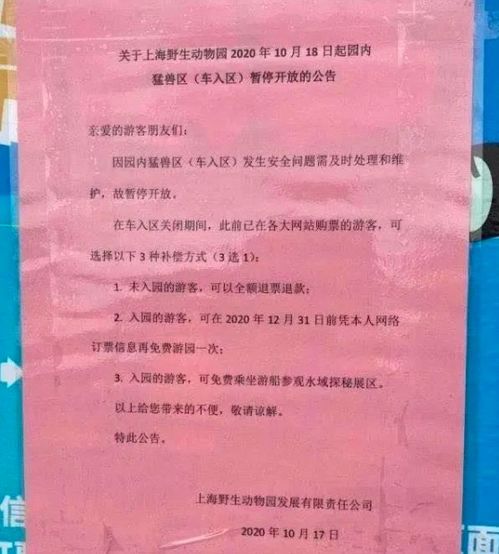 关于上海野生动物园 2020 年 10 月 18 日起园内
猛兽区（车入区）暂停开放的公告
亲爱的游客朋友们：
因园内猛兽区（车入区）发生安全问题需及时处理和维
护，故暂停开放。
在车入区关闭期间，此前已在各大网站购票的游客，可
选择以下 3 种补偿方式（3 选 1）：
1. 未入园的游客，可以全额退票退款；
2. 入园的游客，可在 2020 年 12 月 31 日前凭本人网络
订票信息再免费游园一次；
3. 入园的游客，可免费乘坐游船参观水域探秘展区。
以上给您带来的不便，敬请谅解。
特此公告。
上海野生动物园发展有限责任公司
2020 年 10 月 17 日
信
页面